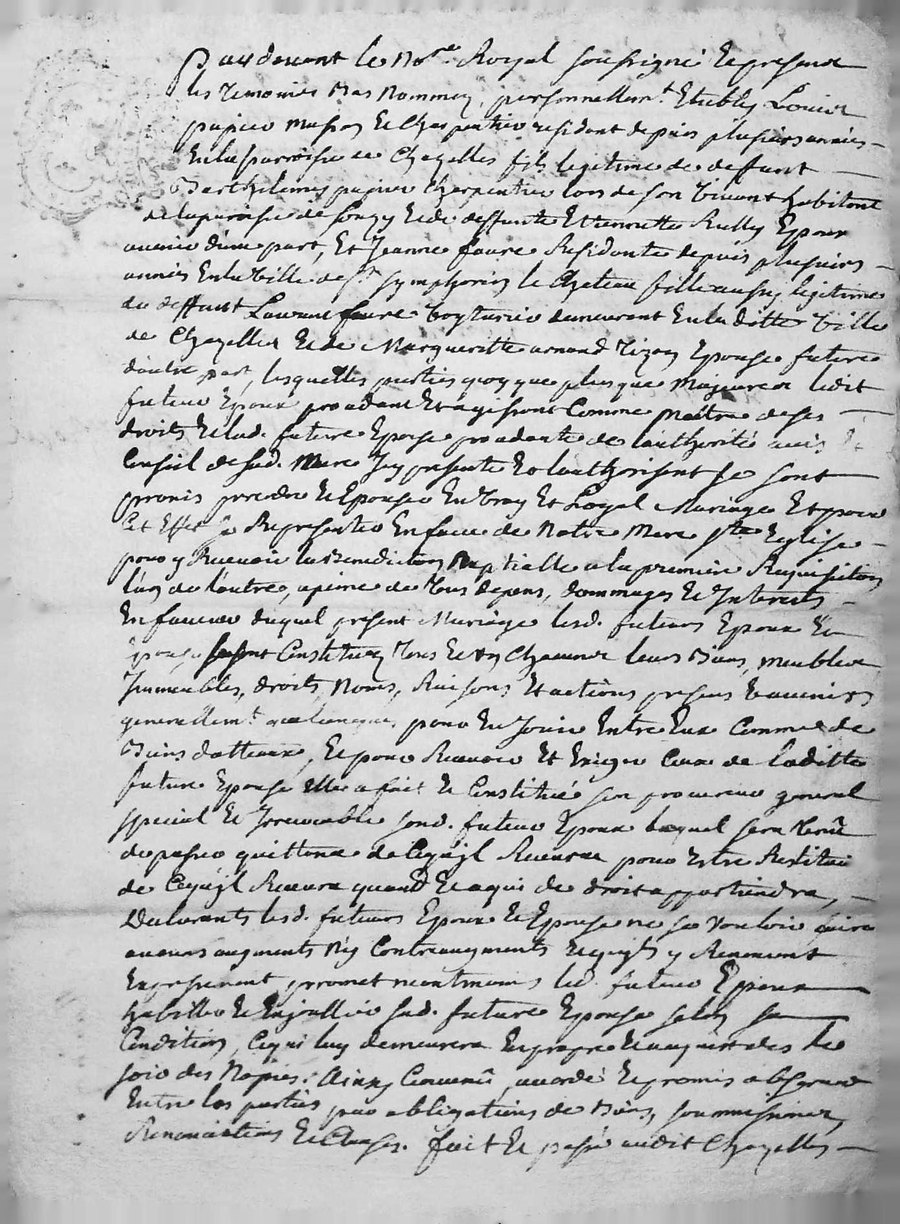 Pardevant le No.re Royal soussigné Et presens
les Temoins Bas Nommez, personnellem.t Etablis Louis
papier masson Et Charpentier residant depuis plusieurs années
En la parroisse de Chazelles fils legitime de deffunt
Barthelemy papier Charpentier lors de son vivant habitant
de la parroisse de Souzy Et de deffunte Ettiennette Rully Epoux
avenir d'une part, Et Jeanne faure Residante depuis plusieurs
années En la Ville de S.t Symphorien le Chateau fille aussy legitime
du deffunt Laurant faure voyturier demeurant En la ditte Ville
de Chazelles Et de Margueritte arnaud Tizon Epouse future
d'autre part, lesquelles parties quoyque plus que Majeures ledit
futeur Epoux procedant Et agissant Comme Maitre de ses
droits Et lad. future Epouse procedante de l'authorité avis Et
Conseil de sad. Mere Icy presente Et l'authorisant se sont
promis prendre Et Epouser En Vray Et Loyal Mariage Et pour
Cet Effet se Representer En face de Notre Mere S.te Eglise
pour y Recevoir la Benediction Nuptialle a la premiere Requisition
l'un de l'autre, a peine de Tous depens, dommages Et Interests
En faveur duquel present Mariage lesd. futeurs Epoux Et
Epouse se sont Constitués Tous Et Un Chacuns leurs Biens, meubles
Immeubles, droits, Noms, Raisons Et actions presens Et avenirs
generallem.t quelconques, pour En Jouir Entre Eux Comme de
Biens dotteaux, Et pour Recevoir Et Exiger Ceux de laditte
future Epouse Elle a fait Et Constitué son procureur general
special Et Irrevocable sond. futeur Epoux lequel sera tenû
de passer quittance de Cequ'jl Recevra pour Estre Restitué
de Cequ'jl Recevra quand Et a qui de droit appartiendra,
Declarants lesd. futeurs Epoux Et Epouse ne se Vouloir faire
aucuns augments Ny Contreaugments Et qu'ils y Renoncent
Expressement, promet neantmoins led. futeur Epoux
habiller Et Enjoailler sad. future Epouse selon sa
Condition, Ce qui luy demeurera En propre Et acquis des le
jour des Nopces. Ainsy Convenû, accordé Et promis observer
Entre les parties par obligations de Biens, soumissions,
Renonciations Et Clauses. fait Et passé audit Chazelles